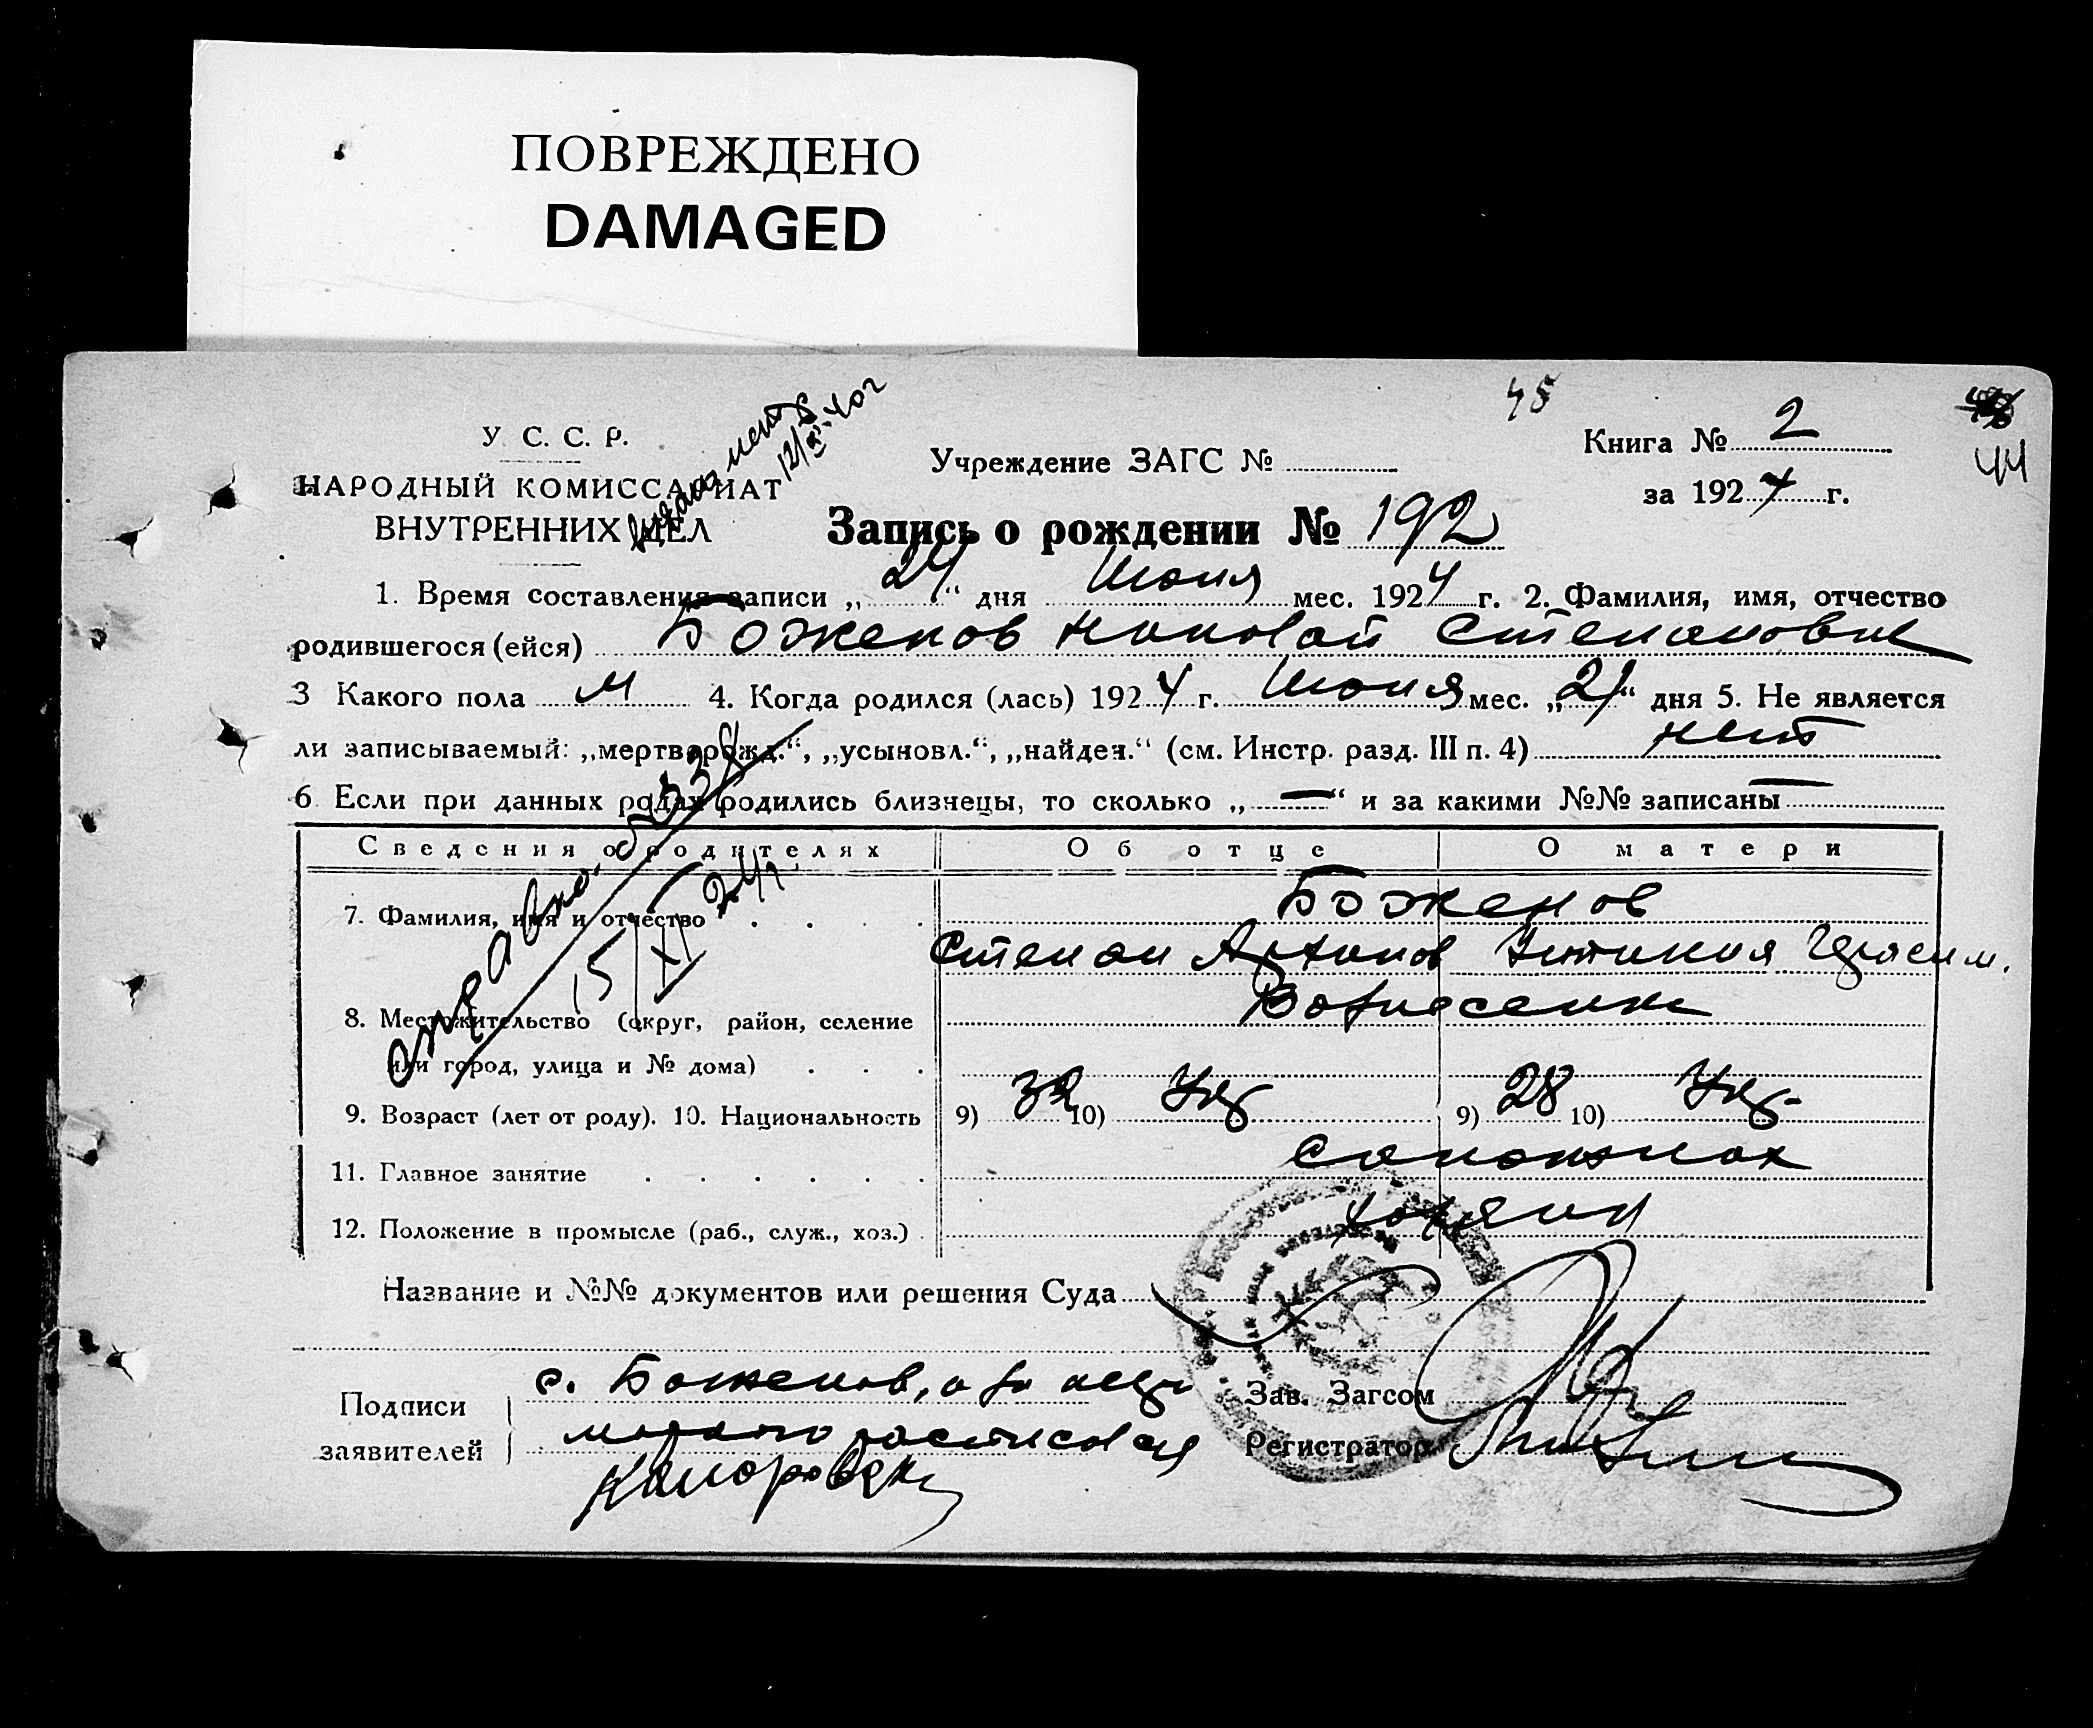 ПОВРЕЖДЕНО
DAMAGED
45
44
У. С. С. Р.
НАРОДНЫЙ КОМИССАРИАТ
ВНУТРЕННИХ ДЕЛ
12/XI-40г
Учреждение ЗАГС №
Книга № 2
за 1924 г.
Запись о рождении № 192
1. Время составления записи „24“ дня Июня мес. 1924 г. 2. Фамилия, имя, отчество
родившегося (ейся) Боженов Николай Степанович
3 Какого пола м 4. Когда родился (лась) 1924 г. Июня мес. „21“ дня 5. Не является
ли записываемый: „мертворожд.“, „усыновл.“, „найден.“ (см. Инстр. разд. III п. 4) нет
6 Если при данных родах родились близнецы, то сколько „—“ и за какими №№ записаны —
Сведения о родителях Об отце О матери
7. Фамилия, имя и отчество Боженов
Степан Архипов Герасим.
8. Местожительство (округ, район, селение Вознесенск
или город, улица и № дома)
9. Возраст (лет от роду). 10. Национальность 9) 32 10) Укр 9) 28 10) Укр.
11. Главное занятие сапожник
12. Положение в промысле (раб., служ., хоз.) хозяин
отправлено
15/XI 24г.
Название и №№ документов или решения Суда
Подписи с. Боженов, а за негр Зав. Загсом
заявителей расписался Регистратор